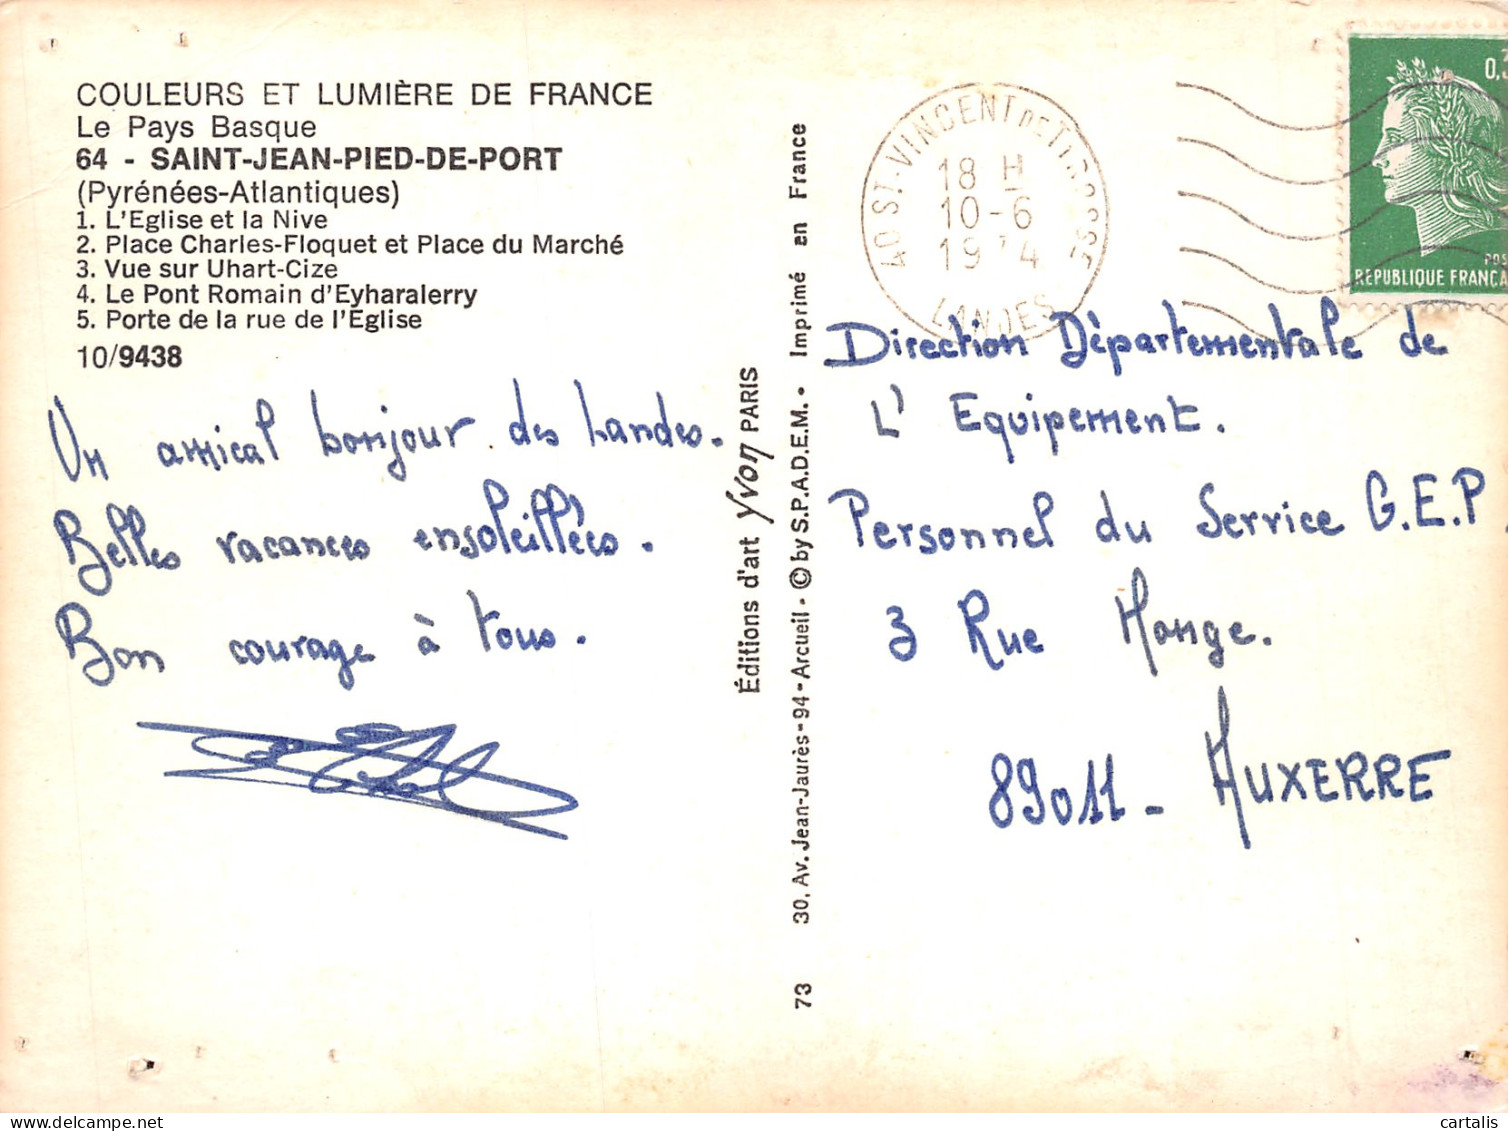 COULEURS ET LUMIÈRE DE FRANCE
Le Pays Basque
64 - SAINT-JEAN-PIED-DE-PORT
(Pyrénées-Atlantiques)
1. L'Eglise et la Nive
2. Place Charles-Floquet et Place du Marché
3. Vue sur Uhart-Cize
4. Le Pont Romain d'Eyharalerry
5. Porte de la rue de l'Eglise
10/9438
Un amical bonjour des Landes.
Belles vacances ensoleillées.
Bon courage à tous.
Éditions d'art Yvon PARIS
73 30, Av. Jean-Jaurès - 94 - Arcueil - © by S.P.A.D.E.M. - Imprimé en France
40 ST-VINCENT DE TYROSSE
18 H
10-6
1974
LANDES
0,3
POS
REPUBLIQUE FRANCA
Direction Départementale de
L'Equipement.
Personnel du Service G.E.P
3 Rue Monge.
89011 - AUXERRE
delcampe.net
cartalis